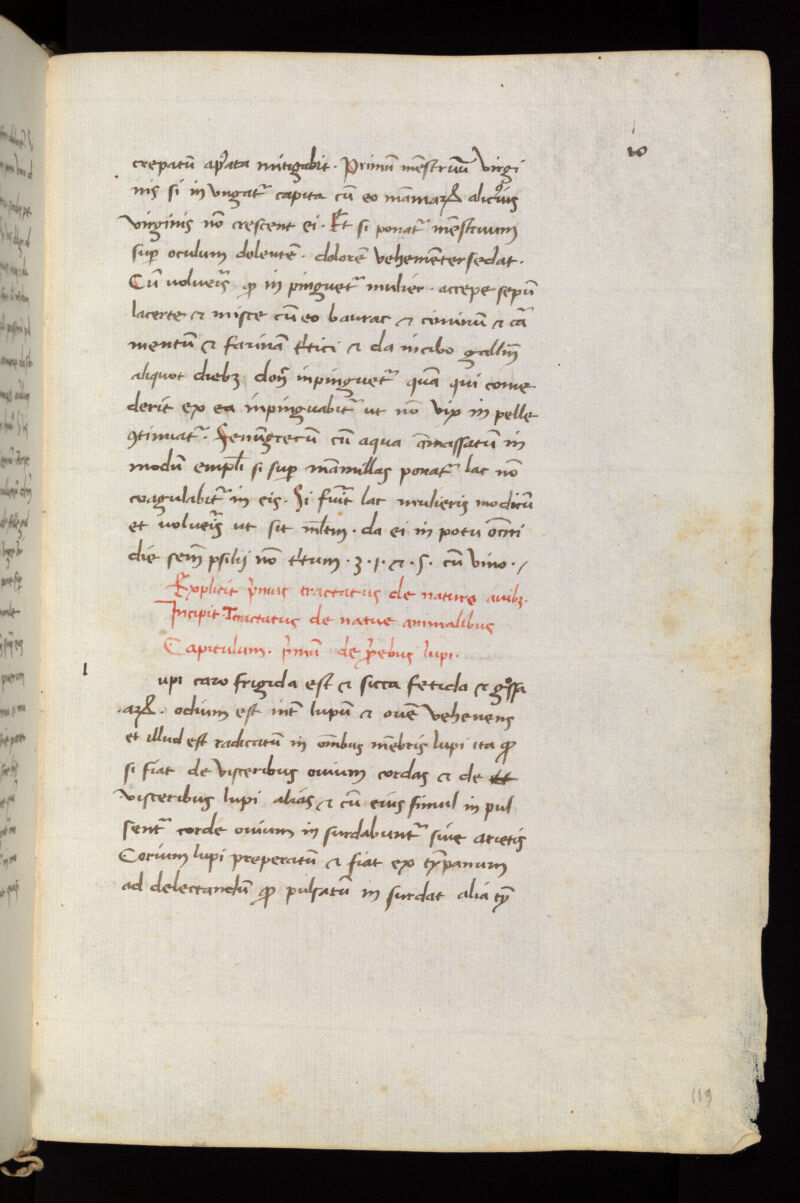 10
crepatū aptata mitigabit · Primū mēstruū virgi
nis si in ungat᷑ capita cū eo māmarꝝ alicuius
virginis nō crescent ei · Et si ponat᷑ mēstruum
sup oculum dolentē · dolorē vehemēter sedat ·
Cū volueris ꝙ in pinguet᷑ mulier · accepe sepū
lacerte et misce cū eo baurac et ciminū et cā
mentū et farinā tritici et da in cibo gallinē
aliquot diebꝫ donec inpinguet᷑ quā qui come
derit ex ea inpinguabit᷑ ut nō vix in pelle
ꝯtinuat᷑ · Fenūgrecū cū aqua āmassatū in
modū emplī si sup māmillas ponat᷑ lac nō
coagulabit᷑ in eis · Si fuit lac mulieris modicū
et volueris ut sit mltm · da ei in potu oīni
die sem̄ psilij nō tritum · ʒ · 1 · et · s · cū vino ·
Explicit pimus tractatus de nature avibꝫ ·
Incipit Tractatus de natue animalibus
Capitulum · pimū de prebus lupi ·
l
upi caro frigida est et sicca fetida et grossa
· arꝝ · odium est int lupū et ovē vehemens
et illud est radicatū in omībus mēbris lupi ita ꝙ
si fiat de visceribus ovium cordas et de
visceribus lupi alias et cū eius simul in pul
sent᷑ corde ovium in surdabunt᷑ sive arietis
Corium lupi preperatū et fiat ex tȳpanum
ad delectandū ꝙ pulsatū in surdat alia tȳ
119